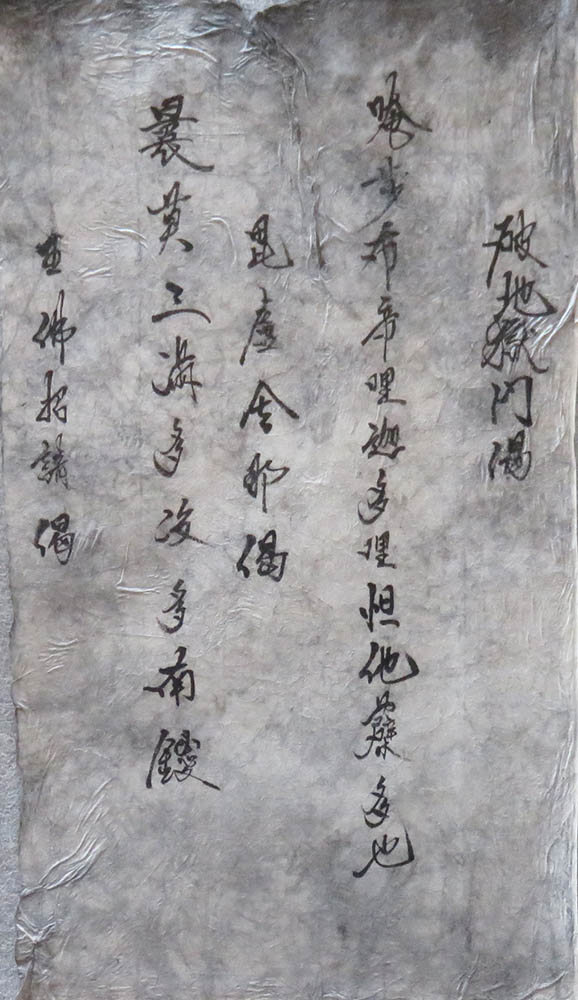 破地獄門偈
唵步布帝哩迦多哩怛他蘖多也
毘盧舍那偈
曩莫三滿多没多南鑁
五佛招請偈